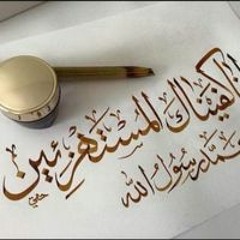 كفيناك المستهزئين
محمد رسول الله